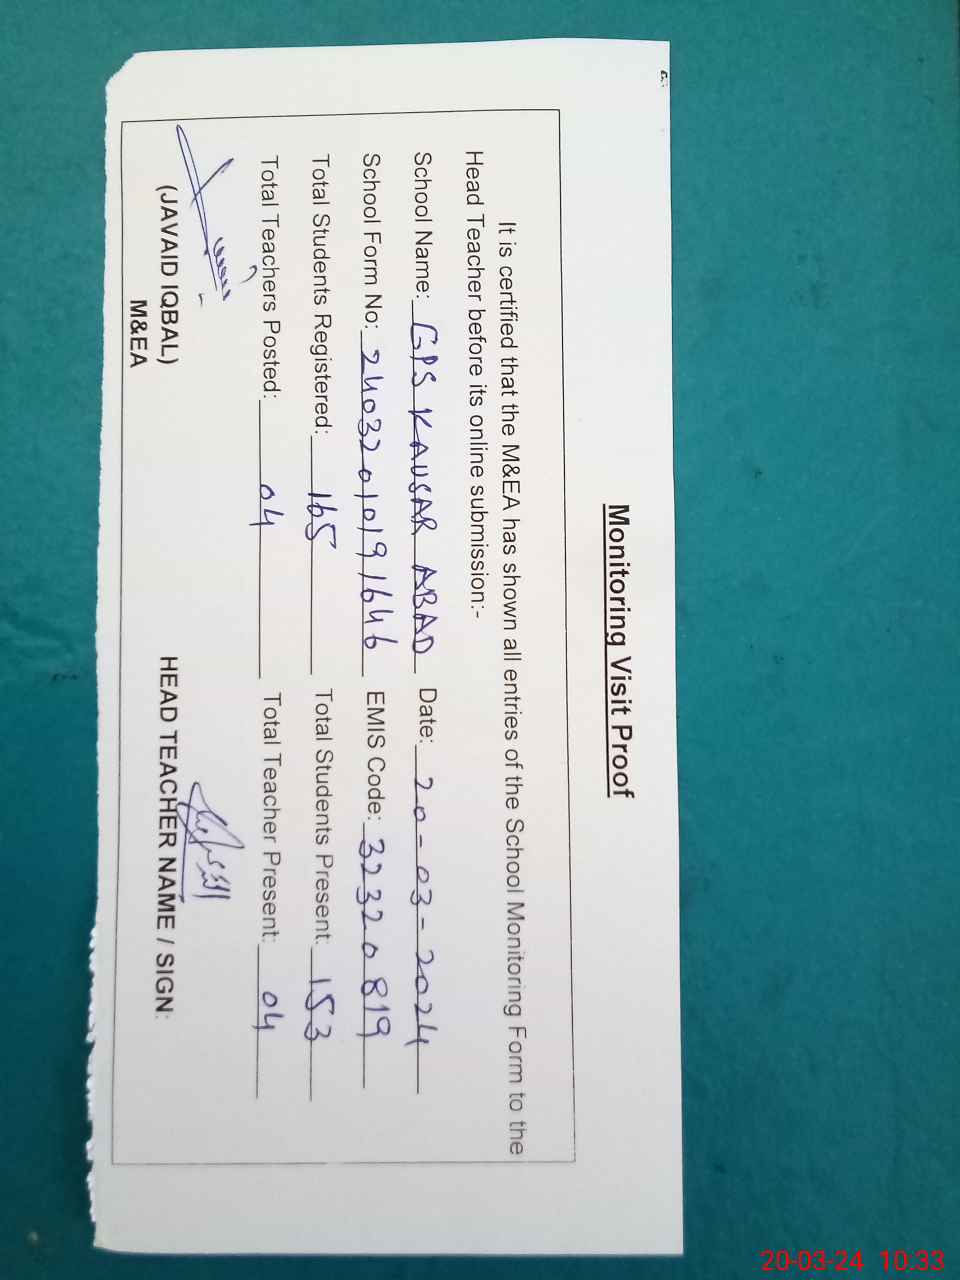 Monitoring Visit Proof
It is certified that the M&EA has shown all entries of the School Monitoring Form to the
Head Teacher before its online submission:-
School Name: GPS KAUSAR ABAD Date: 20-03-2024
School Form No: 24032010191646 EMIS Code: 32320819
Total Students Registered: 165 Total Students Present: 153
Total Teachers Posted: 04 Total Teacher Present: 04
(JAVAID IQBAL) HEAD TEACHER NAME / SIGN:
M&EA
20-03-24 10:33